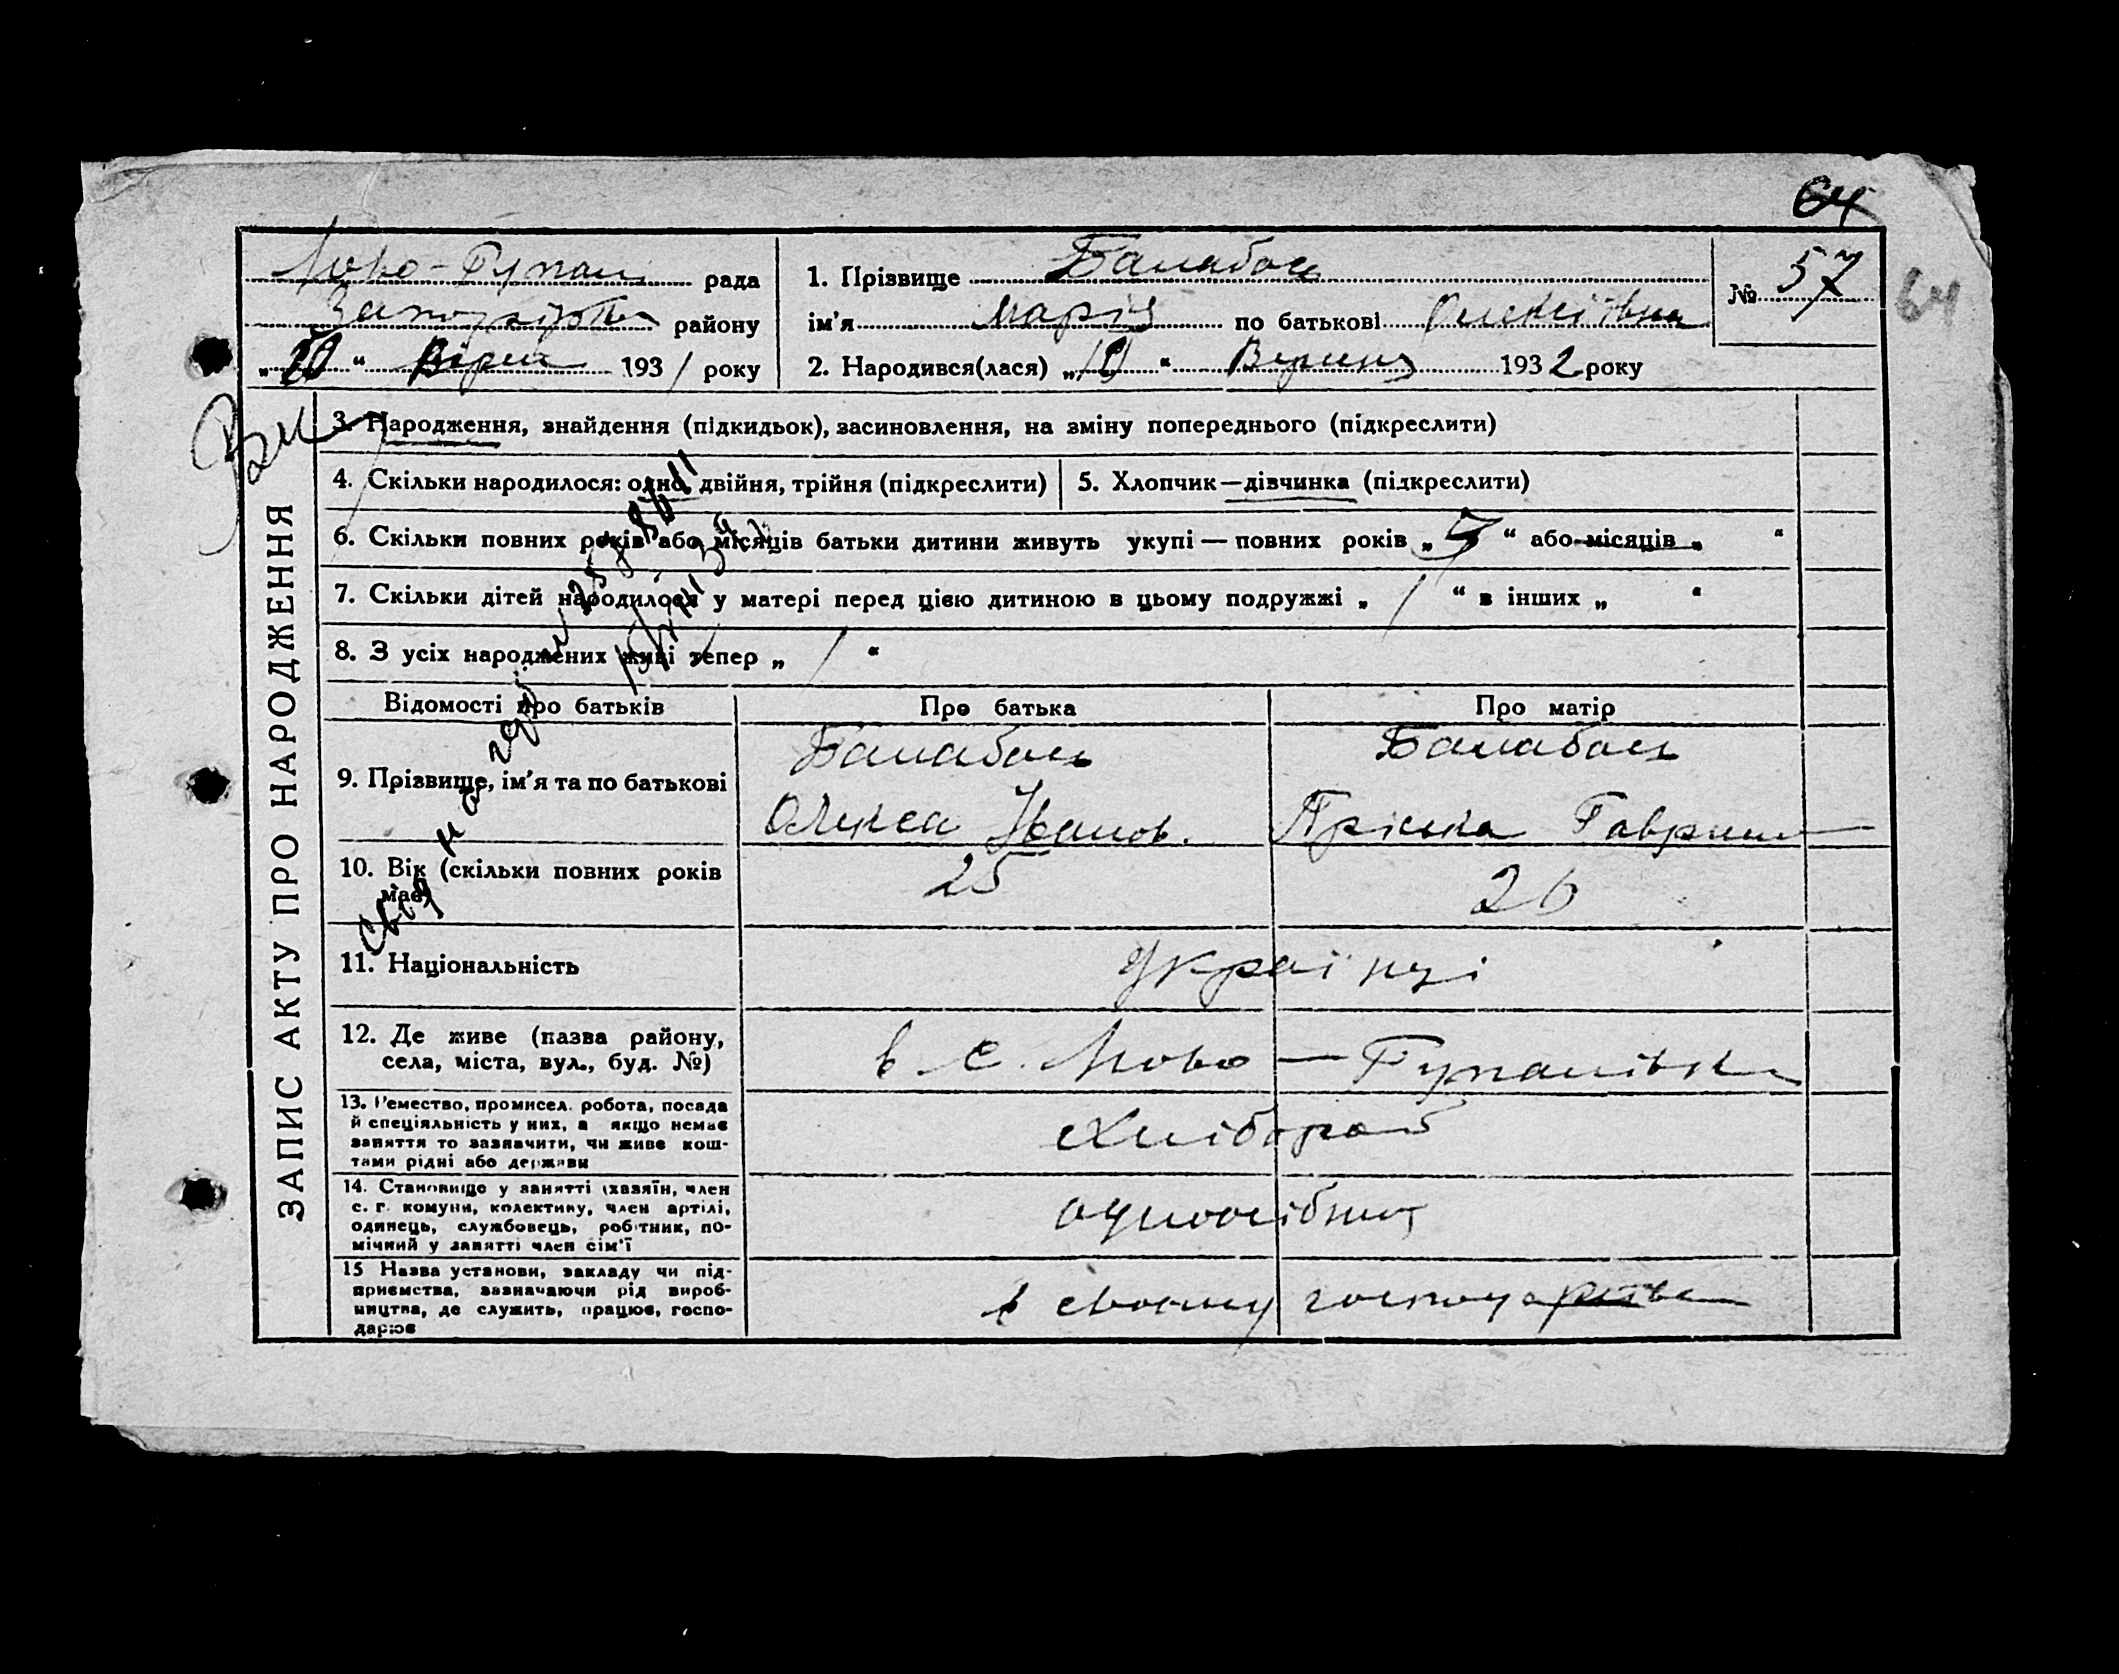 64
Ново-Гупал рада
Запорізьк району
„20“ Вересн 1931 року
1. Прізвище Балабон
ім'я Марія по батькові Олексіївна
2. Народився(лася) „10“ Вересня 1932 року
№ 57
64
ЗАПИС АКТУ ПРО НАРОДЖЕННЯ
3. Народження, знайдення (підкидьок), засиновлення, на зміну попереднього (підкреслити)
4. Скільки народилося: одно, двійня, трійня (підкреслити)
5. Хлопчик—дівчинка (підкреслити)
6. Скільки повних років або місяців батьки дитини живуть укупі — повних років „ 7 “ або місяців „ “
7. Скільки дітей народилося у матері перед цією дитиною в цьому подружжі „ 1 “ в інших „ “
8. З усіх народжених живі тепер „ 1 “
Відомості про батьків
Про батька
Про матір
9. Прізвище, ім'я та по батькові
Балабон
Олекса Іванов.
Балабон
Пріська Гаврил
10. Вік (скільки повних років має)
25
26
11. Національність
Українці
12. Де живе (назва району, села, міста, вул., буд. №)
в с. Ново — Гупалівка
13. Ремество, промисел, робота, посада й спеціяльність у них, а якщо немає заняття то зазначити, чи живе коштами рідні або держави
Хлібороб
14. Становище у занятті (хазяїн, член с. г. комуни, колективу, член артілі, одинець, службовець, робітник, помічний у занятті член сім'ї
одноосібник
15 Назва установи, закладу чи підприємства, зазначаючи рід виробництва, де служить, працює, господарює
в своєму господарстві